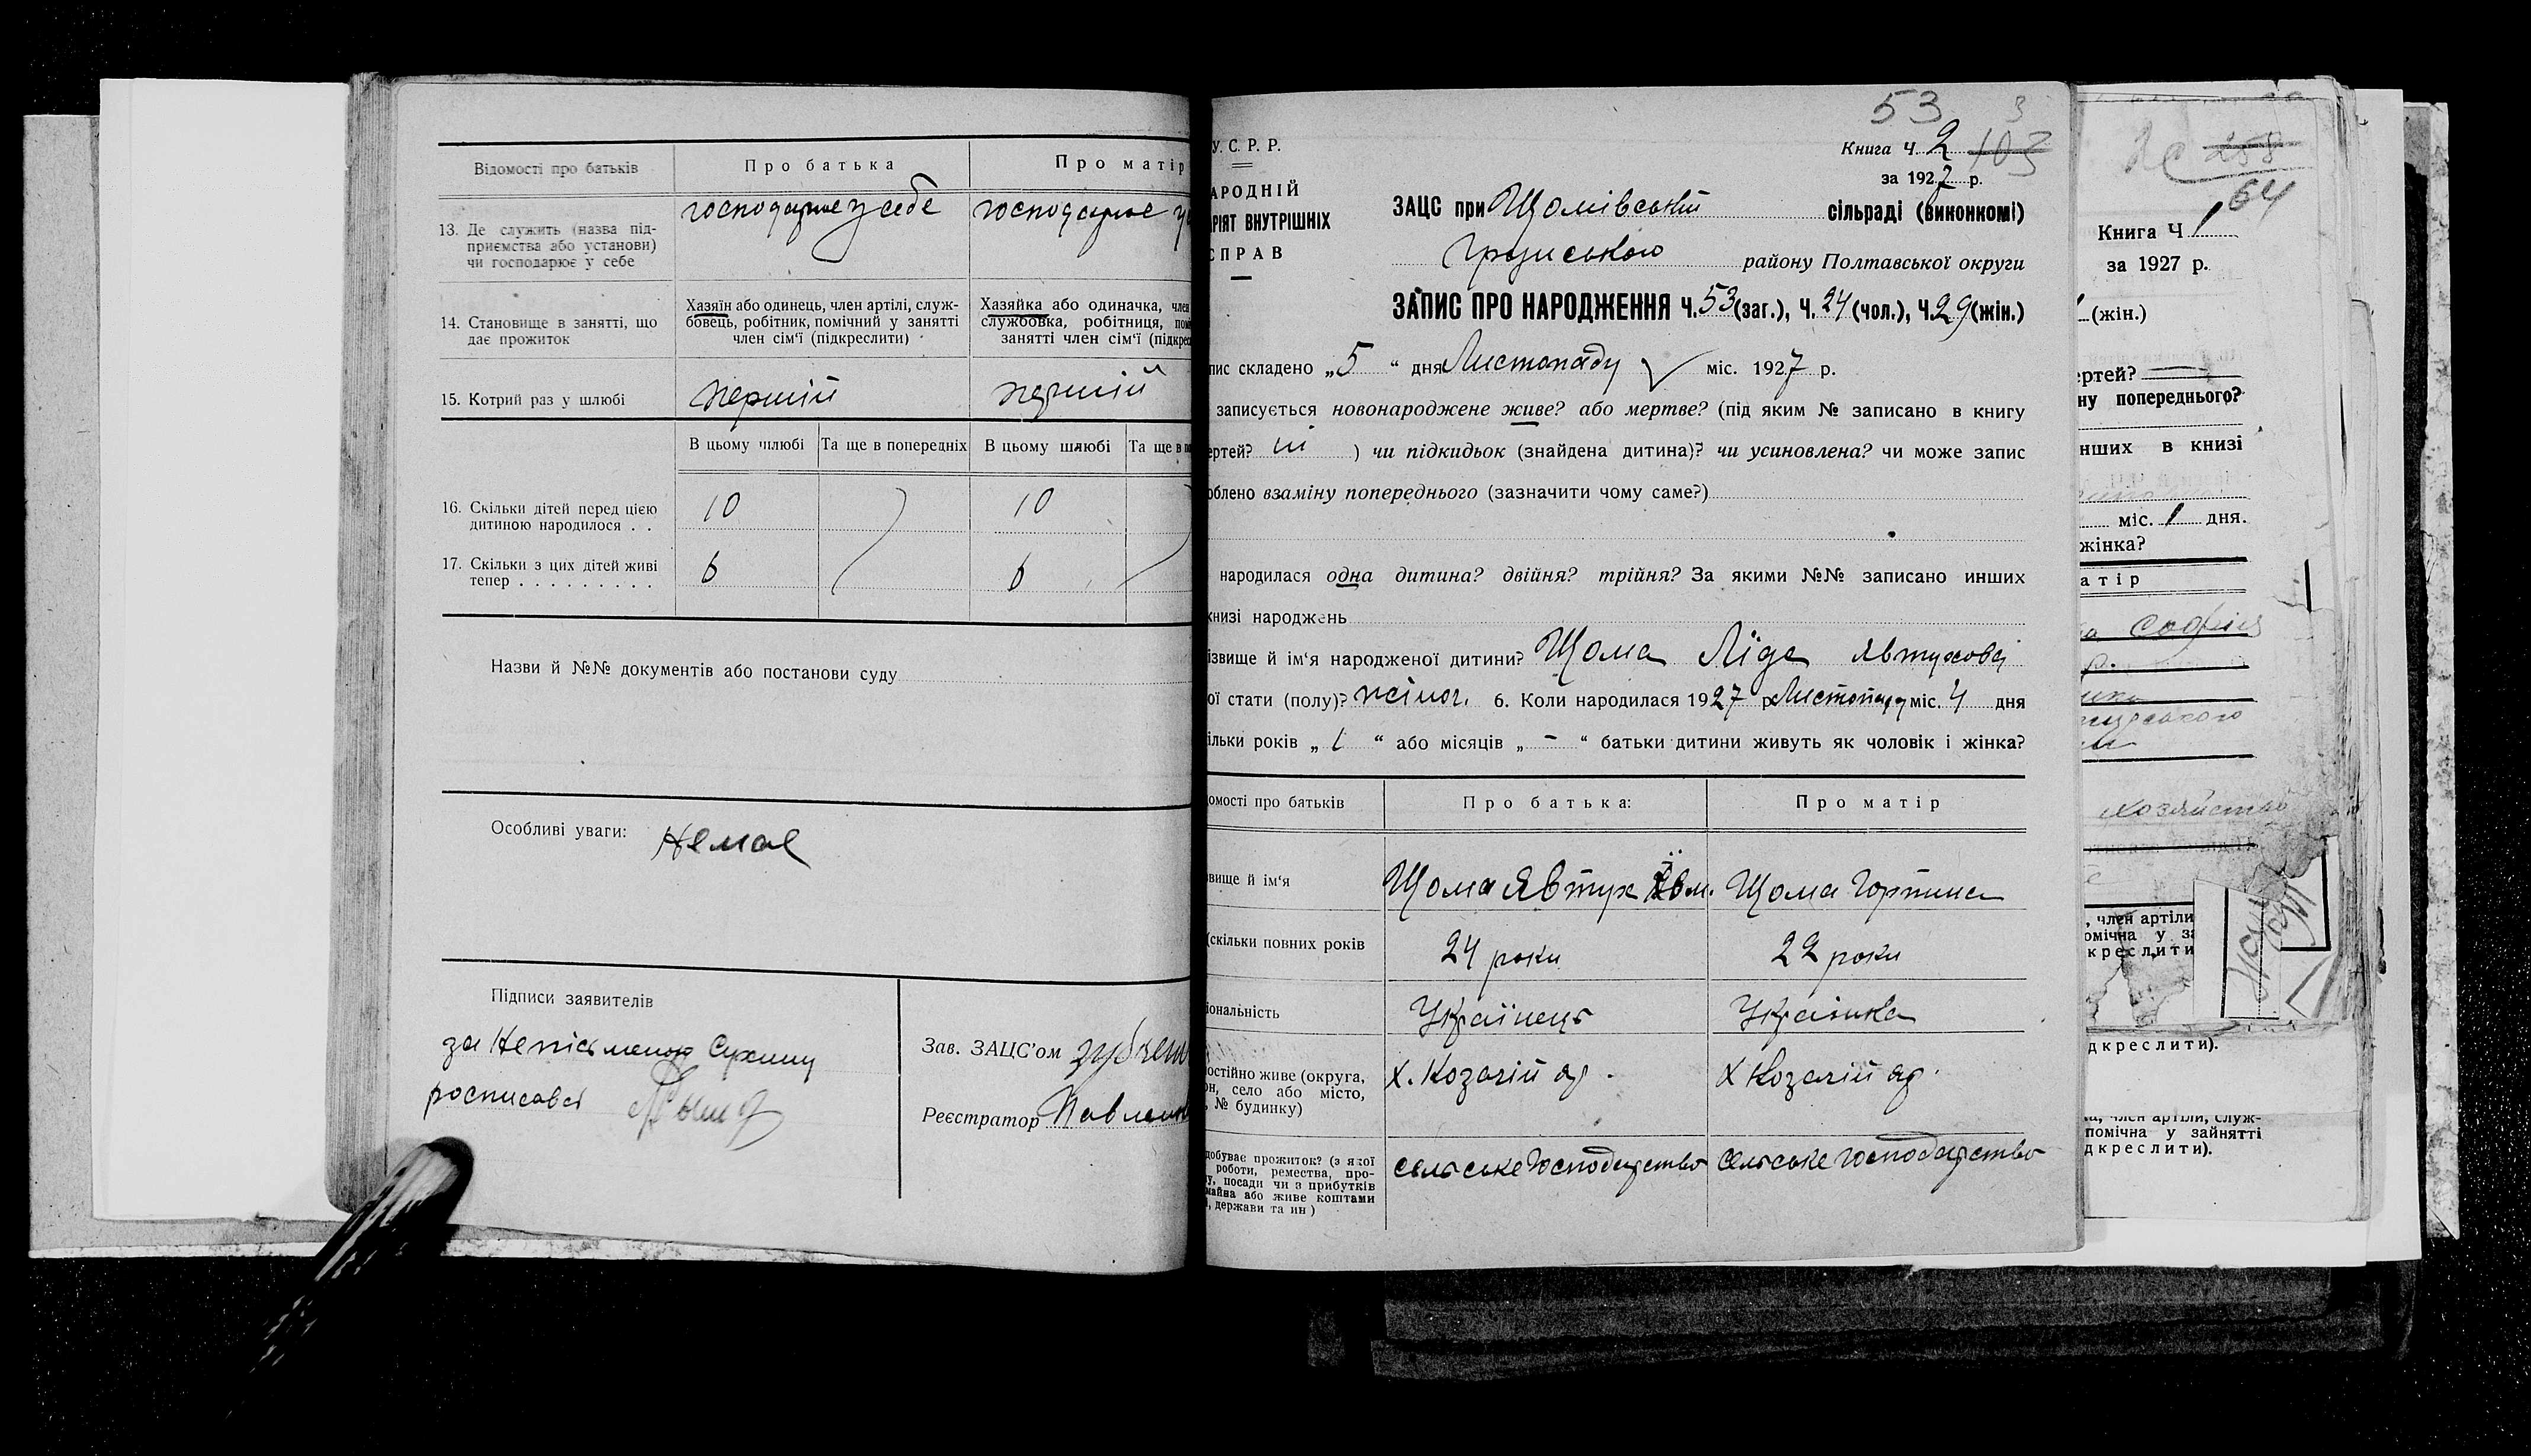 Відомості про батьків
Про батька
Про матір
13. Де служить (назва під-
приємства або установи)
чи господарює у себе
господарює у себе
господарює у
14. Становище в занятті, що
дає прожиток
Хазяїн або одинець, член артілі, служ-
бовець, робітник, помічний у занятті
член сім'ї (підкреслити)
Хазяйка або одиначка, член
службовка, робітниця, пом
занятті член сім'ї (підкрес
15. Котрий раз у шлюбі
перший
перший
В цьому шлюбі
Та ще в попередніх
В цьому шлюбі
Та ще в
16. Скільки дітей перед цією
дитиною народилося . .
10
10
17. Скільки з цих дітей живі
тепер . . . . . . . . .
6
6
Назви й №№ документів або постанови суду
Особливі уваги: Немає
Підписи заявителів
за Неписьменну Сухину
росписався
Зав. ЗАЦС'ом
Реєстратор Павленк
53
3
У.С.Р.Р.
АРОДНІЙ
РІЯТ ВНУТРІШНІХ
СПРАВ
Книга Ч. 2 103
за 1927 р.
ЗАЦС при Щомівський сільраді (виконкомі)
району Полтавської округи
ЗАПИС ПРО НАРОДЖЕННЯ Ч. 53 (заг.), Ч. 24 (чол.), Ч. 29 (жін.)
пис складено „5“ дня Листопаду міс. 1927 р.
записується новонароджене живе? або мертве? (під яким № записано в книгу
ертей? ) чи підкидьок (знайдена дитина)? чи усиновлена? чи може запис
облено взаміну попереднього (зазначити чому саме?)
народилася одна дитина? двійня? трійня? За якими №№ записано инших
книзі народжень
ізвище й ім'я народженої дитини? Щома Ліда Явтухова
ої стати (полу)? жіноч. 6. Коли народилася 1927 р Листопаду міс. 4 дня
ільки років „1“ або місяців „-“ батьки дитини живуть як чоловік і жінка?
омості про батьків
Про батька:
Про матір
вище й ім'я
Щома Явтух
Щома Горпина
(скільки повних років
24 роки
22 роки
іональність
Українець
Українка
остійно живе (округа,
он, село або місто,
, № будинку)
х. Козачий яр.
х Козачий яр.
добуває прожиток? (з якої
роботи, ремества, про-
у, посади чи з прибутків
майна або живе коштами
, держави та ин)
сельське Господарство
Сельське господарство
258
64
Книга Ч 1
за 1927 р.
(жін.)
ертей?
ну попереднього?
нших в книзі
міс. 1 дня.
жінка?
атір
Софія
хозяйство
, член артіли
омічна у за
креслити
дкреслити).
а, член артіли, служ-
помічна у зайнятті
дкреслити).